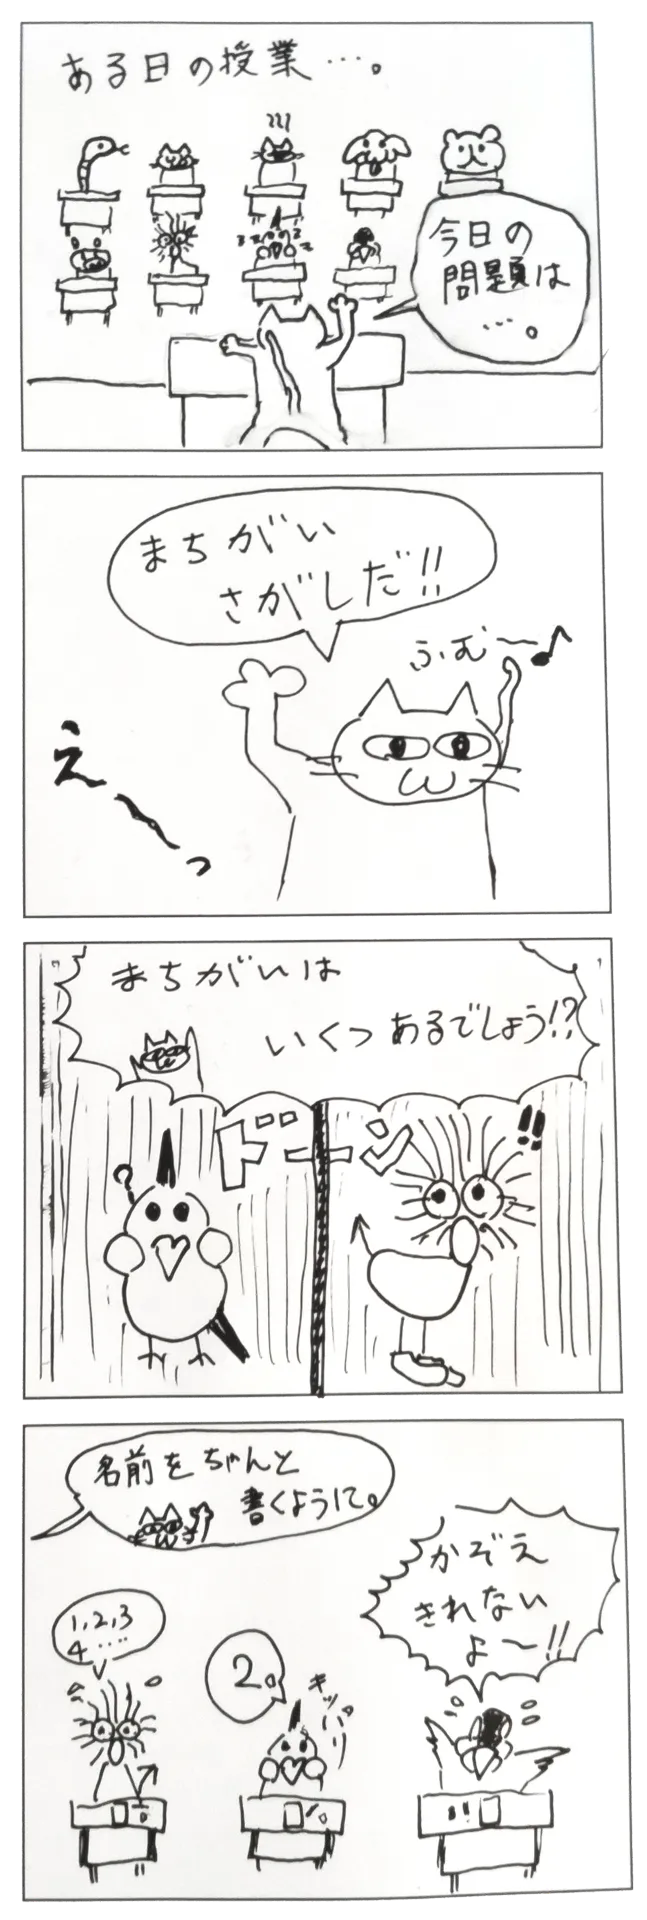 ある日の授業…。
今日の
問題は
…。
まちがい
さがしだ!!
ふむ〜♪
え〜っ
まちがいは
いくつあるでしょう!?
?
ドーン
!!
名前をちゃんと
書くように。
1,2,3
4……
2。
キッパリ
かぞえ
きれない
よ〜!!